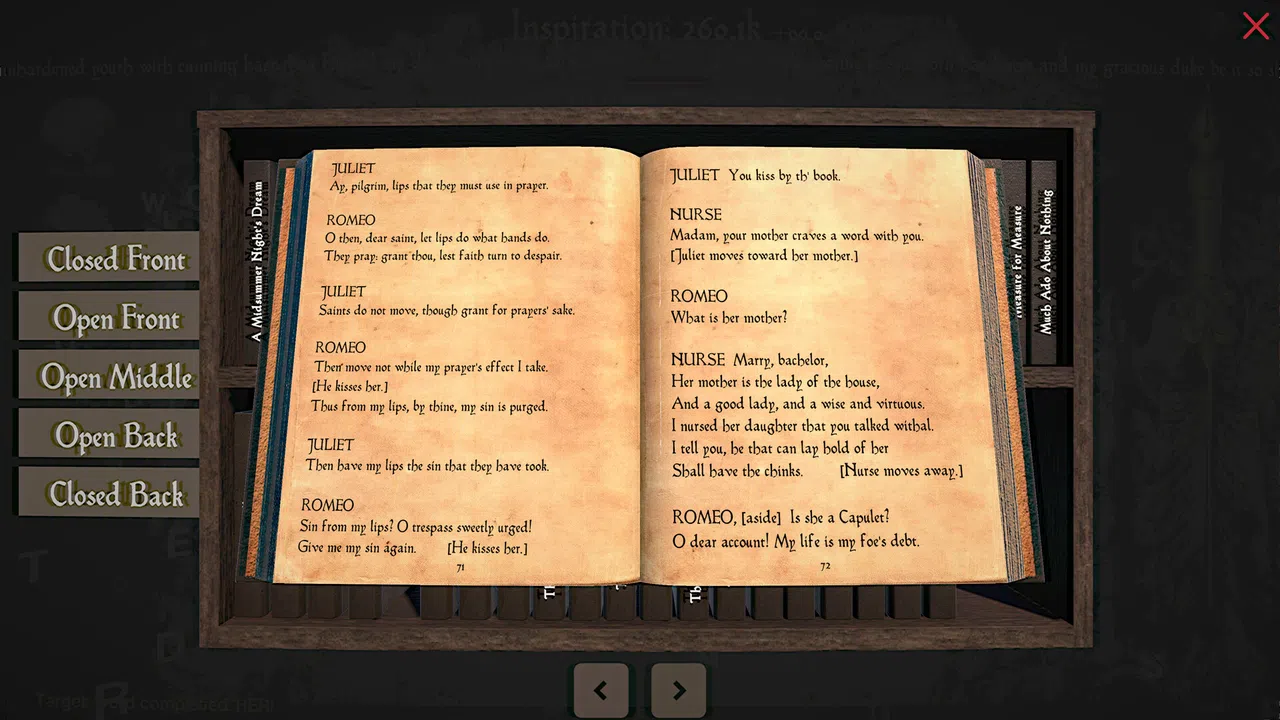 Inspiration: 260.1k
Closed Front
Open Front
Open Middle
Open Back
Closed Back
A Midsummer Night's Dream
JULIET
Ay, pilgrim, lips that they must use in prayer.
ROMEO
O then, dear saint, let lips do what hands do.
They pray: grant thou, lest faith turn to despair.
JULIET
Saints do not move, though grant for prayers' sake.
ROMEO
Then move not while my prayer's effect I take.
[He kisses her.]
Thus from my lips, by thine, my sin is purged.
JULIET
Then have my lips the sin that they have took.
ROMEO
Sin from my lips? O trespass sweetly urged!
Give me my sin again. [He kisses her.]
71
JULIET You kiss by th' book.
NURSE
Madam, your mother craves a word with you.
[Juliet moves toward her mother.]
ROMEO
What is her mother?
NURSE Marry, bachelor,
Her mother is the lady of the house,
And a good lady, and a wise and virtuous.
I nursed her daughter that you talked withal.
I tell you, he that can lay hold of her
Shall have the chinks. [Nurse moves away.]
ROMEO, [aside] Is she a Capulet?
O dear account! My life is my foe's debt.
72
Measure For Measure
Much Ado About Nothing